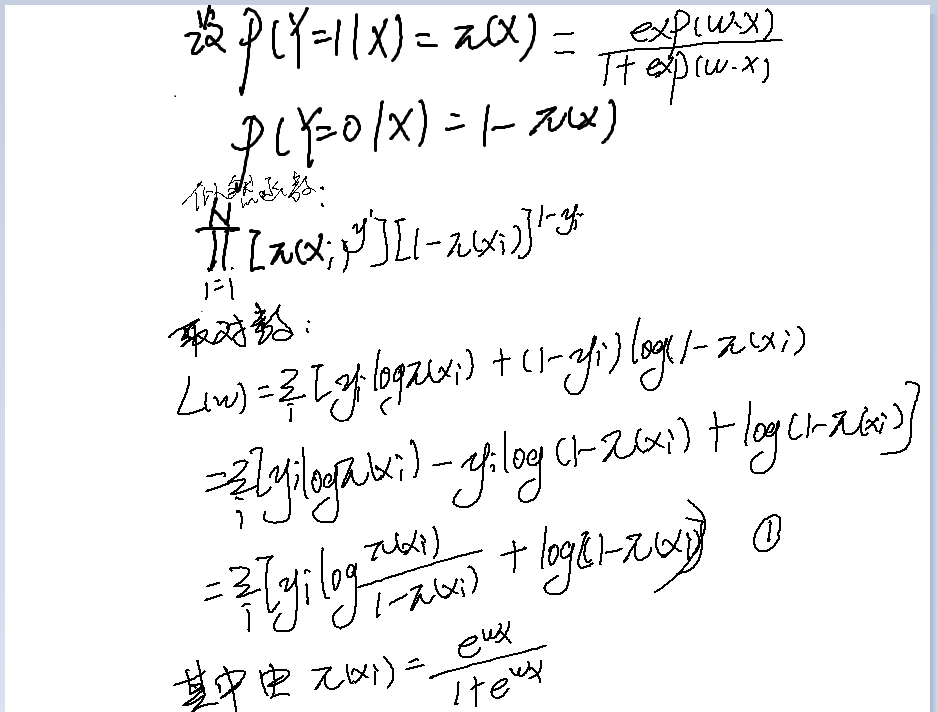 设 P(Y=1|X) = π(X) = exp(w·x) / 1+exp(w·x)
P(Y=0|X) = 1-π(x)
似然函数:
∏_{i=1}^{N} [π(x_i)^{y_i}][1-π(x_i)]^{1-y_i}
取对数:
L(w) = Σ_i [y_i logπ(x_i) + (1-y_i) log(1-π(x_i)
= Σ_i [y_i logπ(x_i) - y_i log(1-π(x_i) + log(1-π(x_i)]
= Σ_i [y_i log π(x_i) / 1-π(x_i) + log(1-π(x_i))] ①
其中由 π(x_i) = e^{wx} / 1+e^{wx}